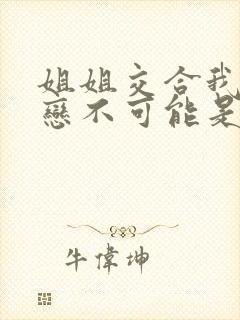 姐姐交合我
戀不可能是
牛偉坤